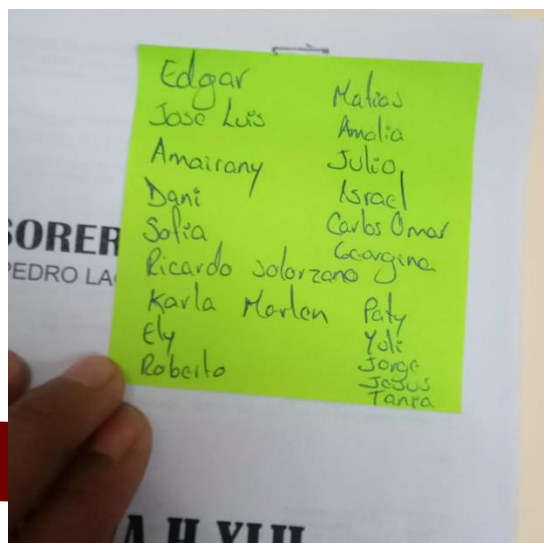 Edgar
Jose Luis
Amairany
Dani
Sofia
Ricardo Solorzano
Karla Marlen
Ely
Roberto
Matias
Amalia
Julio
Israel
Carlos Omar
Georgina
Paty
Yuli
Jorge
Jesus
Tania
SORER
PEDRO LA